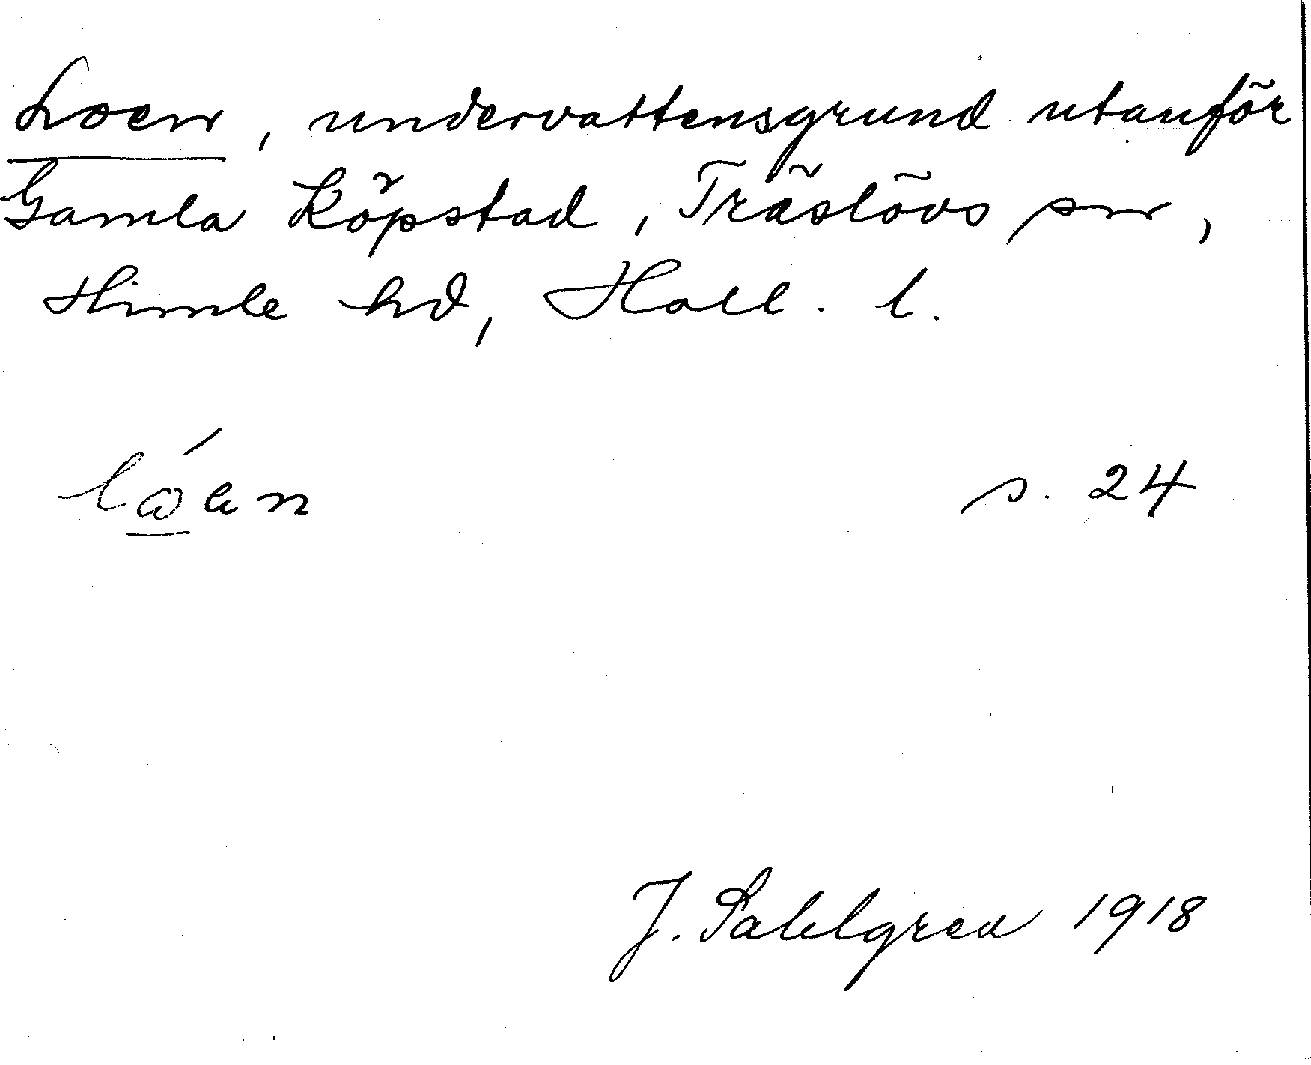 Loen, undervattensgrund utanför
Gamla Köpstad, Träslövs sn,
Himle hd, Hall. l.
s. 24
J. Sahlgren 1918